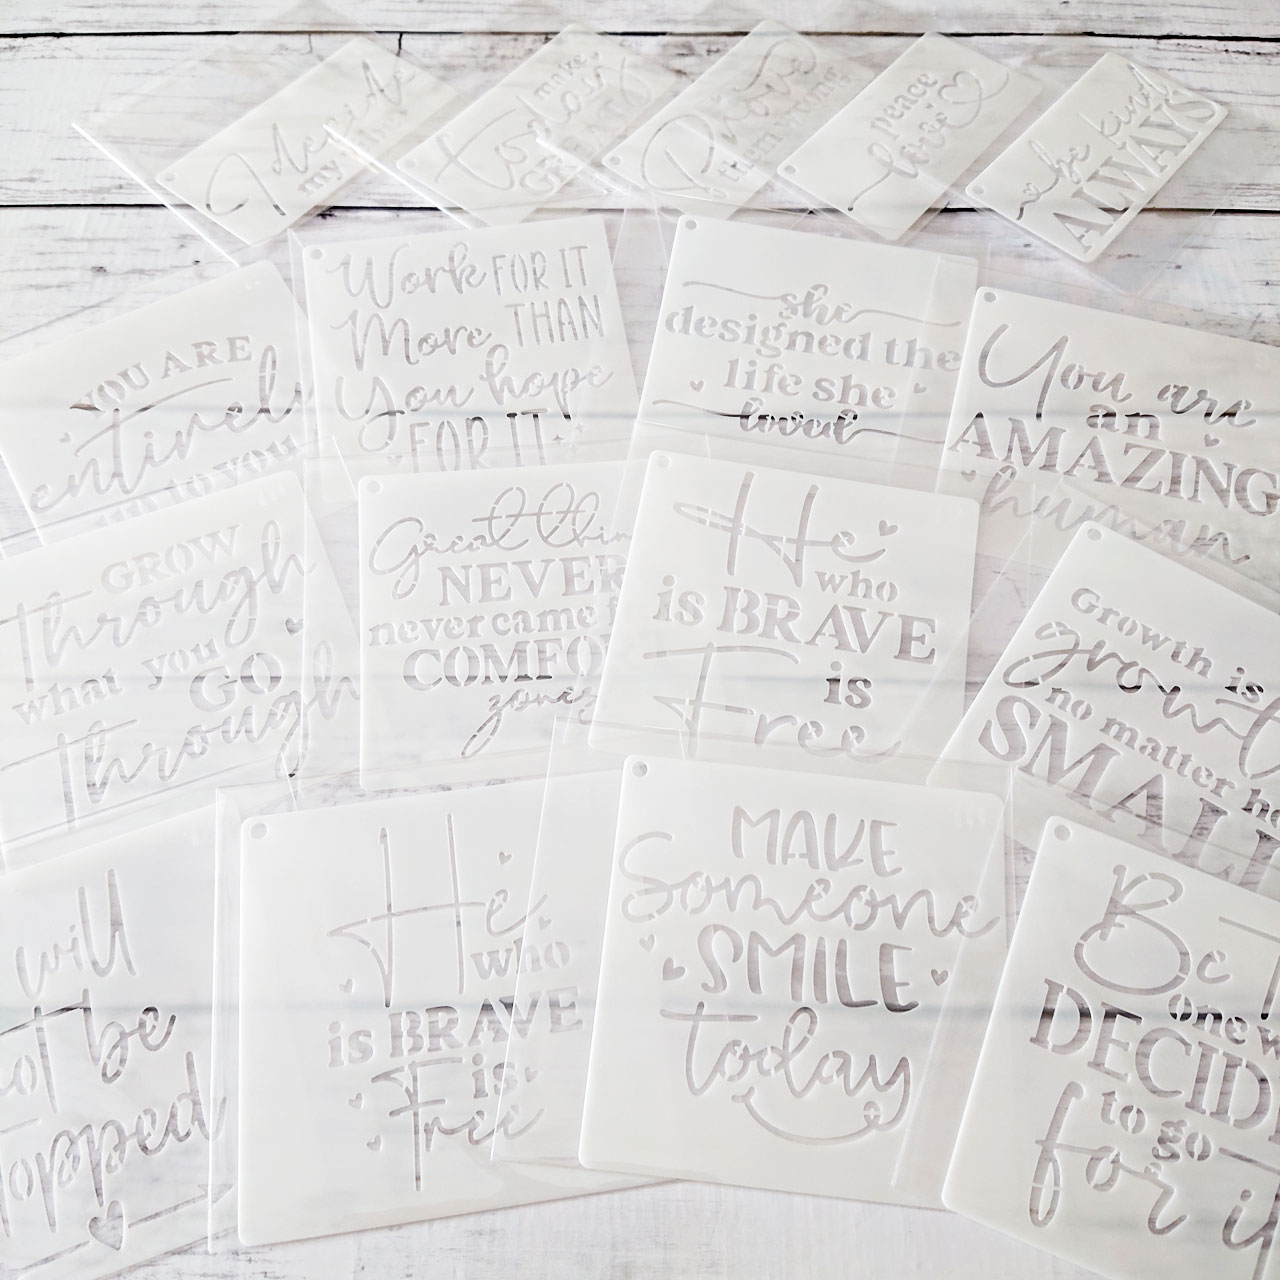 I decide
my
make
today
GREAT
Prove
them wrong
peace
love
be kind
ALWAYS
YOU ARE
entirely
up to you
Work FOR IT
More THAN
You hope
FOR IT
she
designed the
life she
loved
You are
an
AMAZING
human
GROW
Through
what you
GO
Through
Great thin
NEVER
never came f
COMFO
zones
He
who
is BRAVE
is
Free
Growth is
growt
no matter ho
SMALL
will
not be
topped
He
who
is BRAVE
is
Free
MAKE
Someone
SMILE
today
Be T
one w
DECID
to go
for i